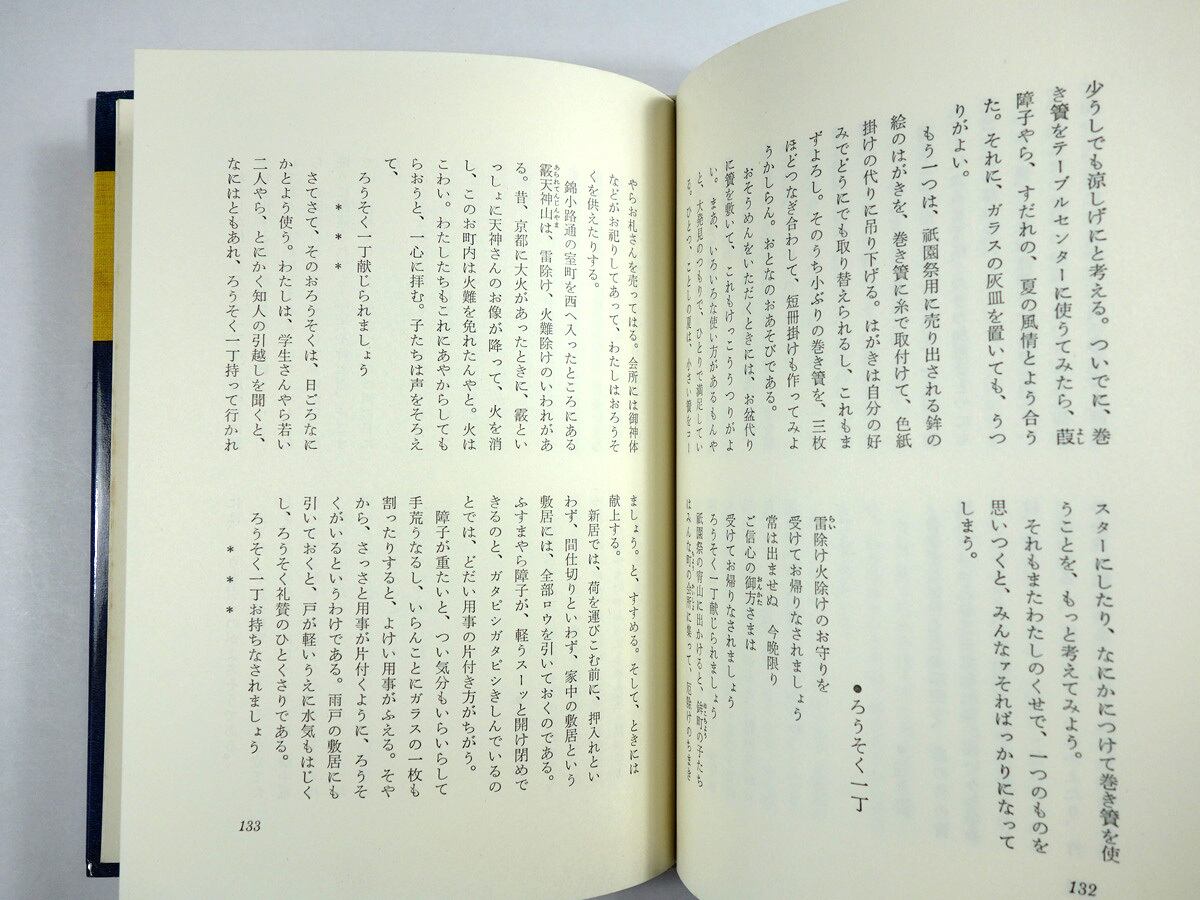 少うしでも涼しげにと考える。ついでに、巻
き簀をテーブルセンターに使うてみたら、葭
よし
障子やら、すだれの、夏の風情とよう合う
た。それに、ガラスの灰皿を置いても、うつ
りがよい。
もう一つは、祇園祭用に売り出される鉾の
絵のはがきを、巻き簀に糸で取付けて、色紙
掛けの代りに吊り下げる。はがきは自分の好
みでどうにでも取り替えられるし、これもま
ずよろし。そのうち小ぶりの巻き簀を、三枚
ほどつなぎ合わして、短冊掛けも作ってみよ
うかしらん。おとなのおあそびである。
おそうめんをいただくときには、お盆代り
に簀を敷いて、これもけっこううつりがよ
い。まあ、いろいろな使い方があるもんや
と、大発見のつもりで、ひとりで満足してい
る。ひとつ、ことしの夏は、小さい簀をコー
スターにしたり、なにかにつけて巻き簀を使
うことを、もっと考えてみよう。
それもまたわたしのくせで、一つのものを
思いつくと、みんなァそればっかりになって
しまう。
●ろうそく一丁
雷除け火除けのお守りを
らい
受けてお帰りなされましょう
常は出ませぬ 今晩限り
ご信心の御方さまは
おんかた
受けてお帰りなされましょう
ろうそく一丁献じられましょう
祇園祭の宵山に出かけると、鉾町の子たち
はみんな、町の会所に集って、厄除けのちまき
132
やらお札さんを売ってはる。会所には御神体
などがお祀りしてあって、わたしはおろうそ
くを供えたりする。
錦小路通の室町を西へ入ったところにある
霰天神山は、雷除け、火難除けのいわれがあ
あられてんじんやま
る。昔、京都に大火があったときに、霰とい
っしょに天神さんのお像が降って、火を消
し、このお町内は火難を免れたんやと。火は
こわい。わたしたちもこれにあやからしても
らおうと、一心に拝む。子たちは声をそろえ
て、
ろうそく一丁献じられましょう
＊ ＊ ＊
さてさて、そのおろうそくは、日ごろなに
かとよう使う。わたしは、学生さんやら若い
二人やら、とにかく知人の引越しを聞くと、
なにはともあれ、ろうそく一丁持って行かれ
ましょう。と、すすめる。そして、ときには
献上する。
新居では、荷を運びこむ前に、押入れとい
わず、間仕切りといわず、家中の敷居という
敷居には、全部ロウを引いておくのである。
ふすまやら障子が、軽うスーッと開け閉めで
きるのと、ガタピシガタピシきしんでいるの
とでは、どだい用事の片付き方がちがう。
障子が重たいと、つい気分もいらいらして
手荒うなるし、いらんことにガラスの一枚も
割ったりすると、よけい用事がふえる。そや
から、さっさと用事が片付くように、ろうそ
くがいるというわけである。雨戸の敷居にも
引いておくと、戸が軽いうえに水気もはじく
し、ろうそく礼賛のひとくさりである。
ろうそく一丁お持ちなされましょう
＊ ＊ ＊
133